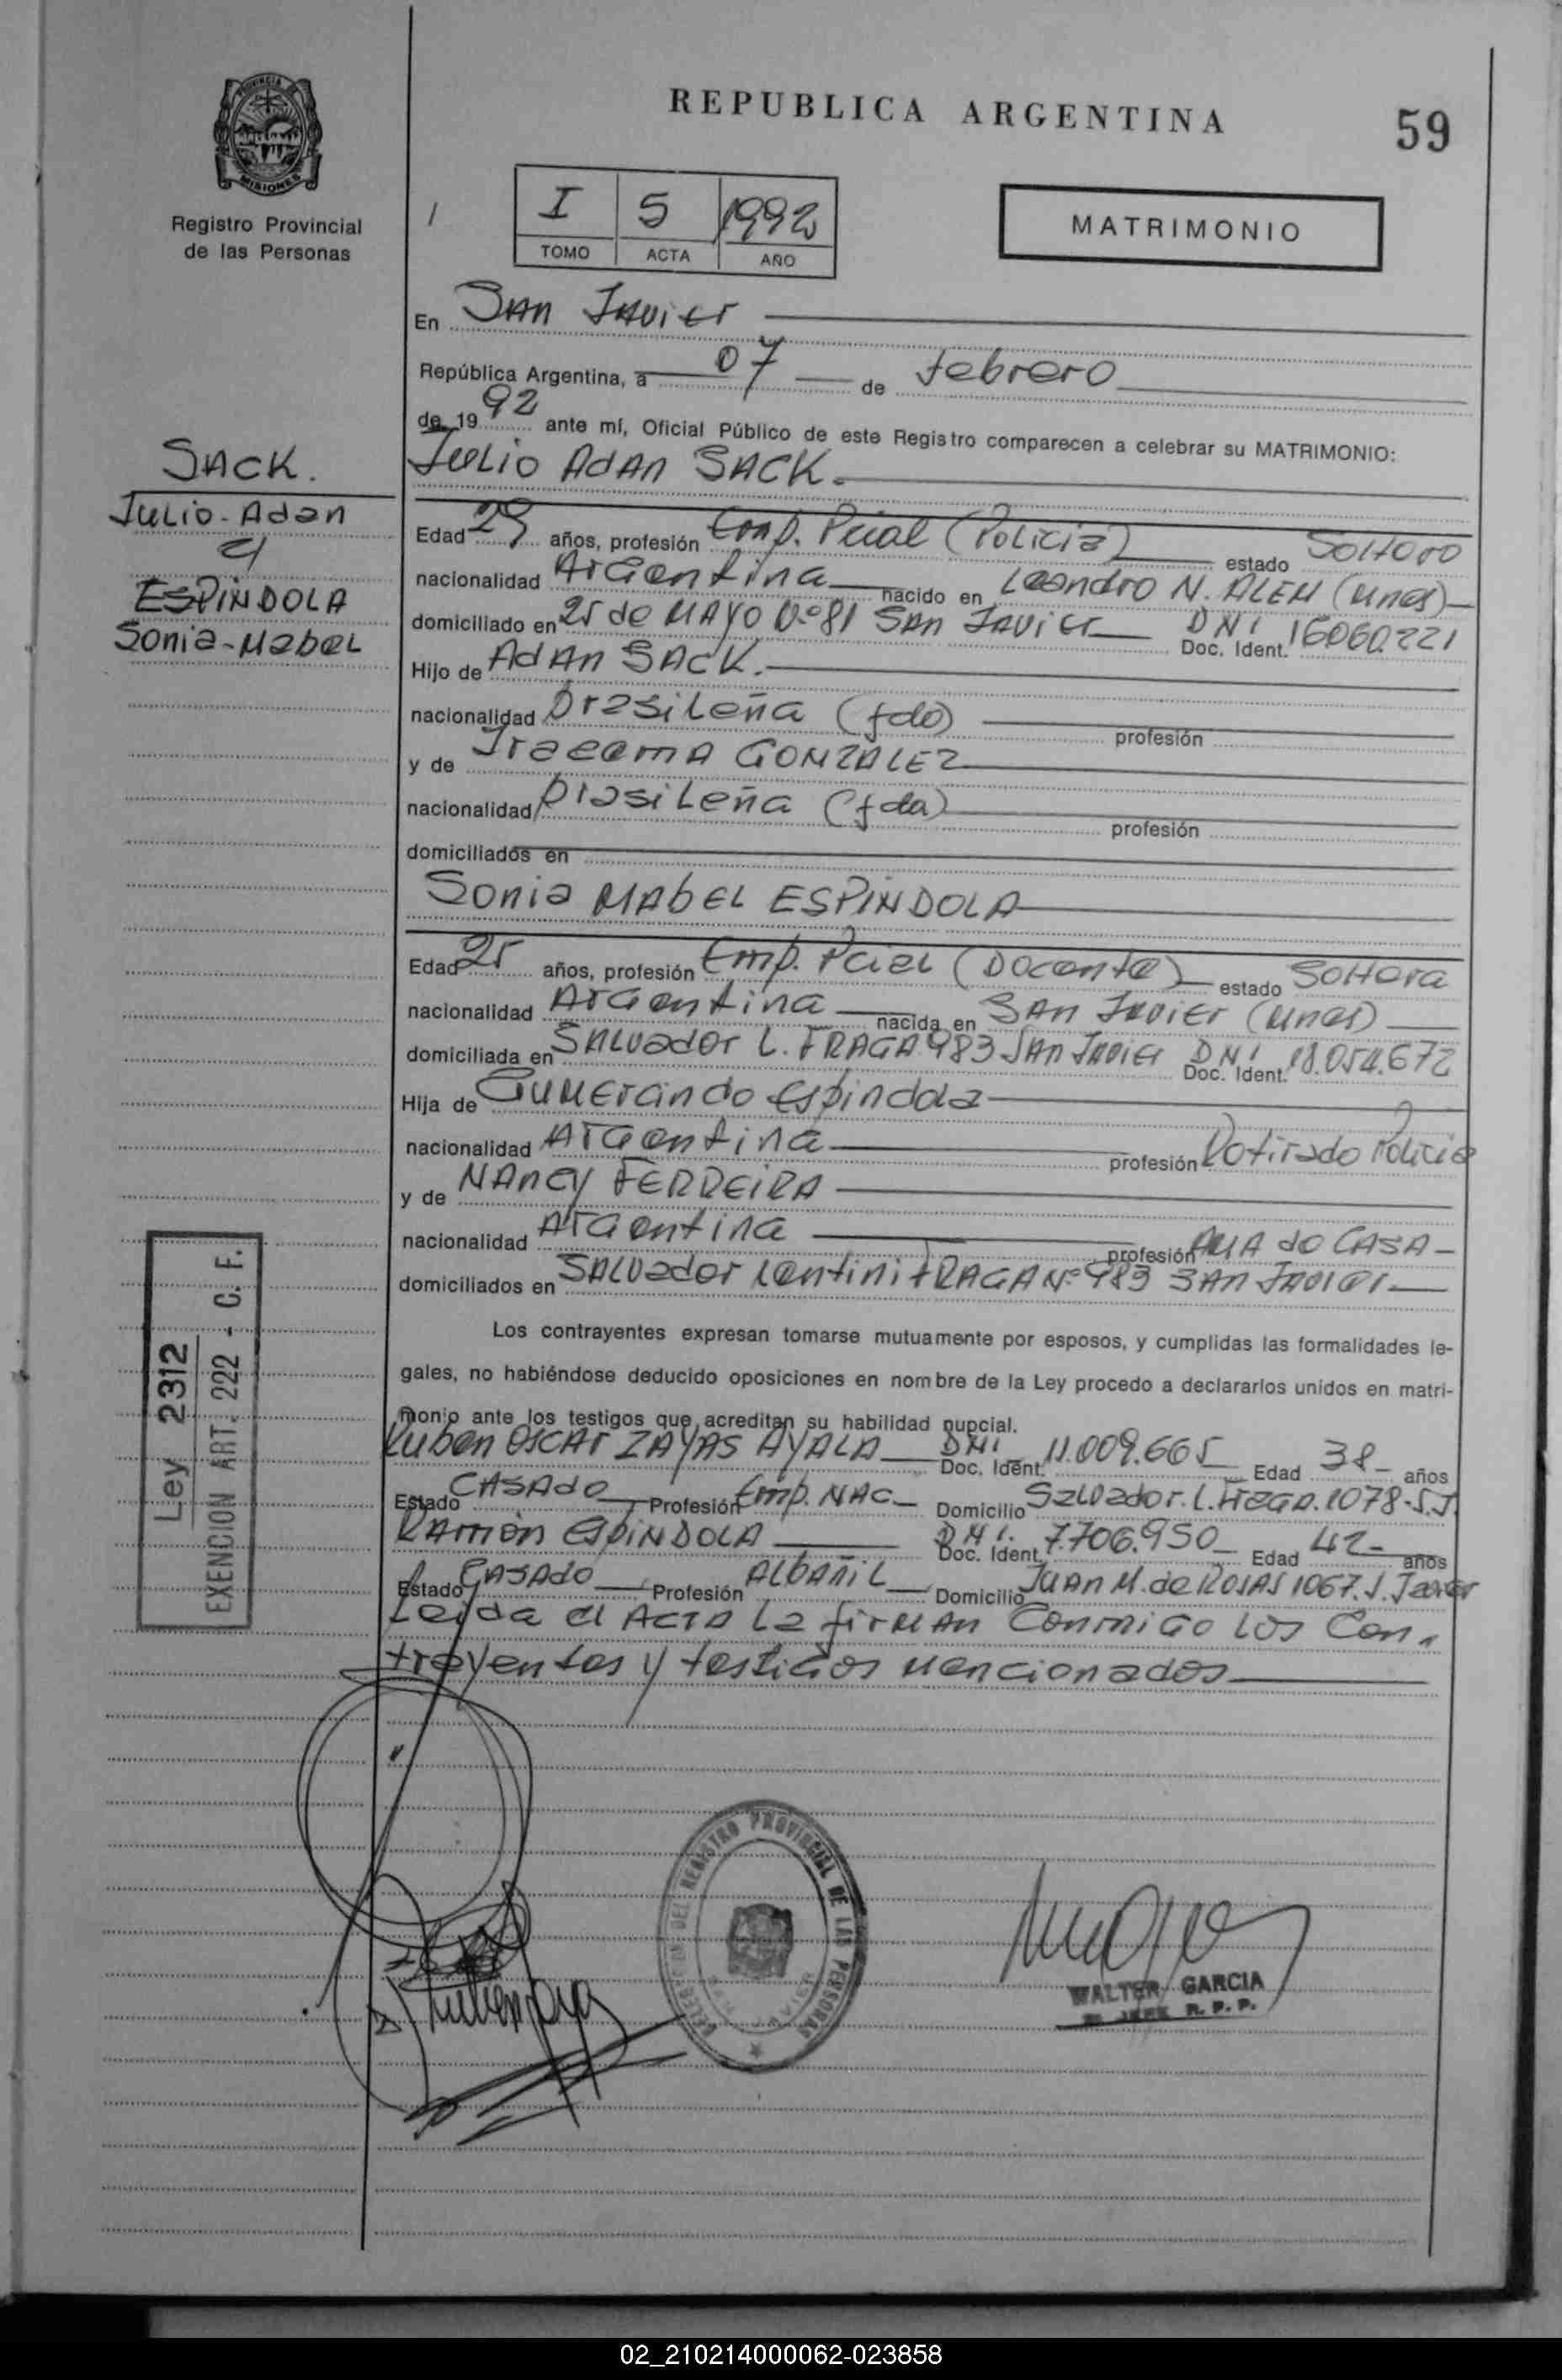 REPUBLICA ARGENTINA
59
PROVINCIA DE
MISIONES
Registro Provincial
de las Personas
I 5 1992
TOMO ACTA AÑO
MATRIMONIO
En San Javier
República Argentina, a 07 de febrero
de 19 92 ante mí, Oficial Público de este Registro comparecen a celebrar su MATRIMONIO:
Julio Adan SACK.
SACK.
Julio-Adan
y
ESPINDOLA
Sonia-Mabel
Edad 29 años, profesión Emp. Pcial (Policia) estado Soltero
nacionalidad Argentina nacido en Leandro N. ALEM (Mnes)
domiciliado en 25 de MAYO Nº 81 San Javier DNI Doc. Ident. 16060.221
Hijo de Adan SACK.
nacionalidad brasileña (fdo) profesión
y de Iracema GONZALEZ
nacionalidad brasileña (fda) profesión
domiciliados en
Sonia MAbEL ESPINDOLA
Edad 25 años, profesión Emp. Pcial (Docente) estado Soltera
nacionalidad Argentina nacida en San Javier (Mnes)
domiciliada en Salvador L. FRAGA 983 San Javier DNI Doc. Ident. 18.054.672
Hija de Gumercindo Espindola
nacionalidad Argentina profesión Retirado Policia
y de NAncy FERREIRA
nacionalidad Argentina profesión AMA de CASA
domiciliados en Salvador Lentini FRAGA Nº 983 San Javier
Los contrayentes expresan tomarse mutuamente por esposos, y cumplidas las formalidades le-
gales, no habiéndose deducido oposiciones en nombre de la Ley procedo a declararlos unidos en matri-
monio ante los testigos que acreditan su habilidad nupcial.
Ruben Oscar ZAYAS AYALA DNI Doc. Ident. 11.009.665 Edad 38 años
Estado CASAdo Profesión Emp. NAC Domicilio Salvador. L. Fraga. 1078-S.J.
Ramón ESpINDOLA DNI. Doc. Ident. 7.706.950 Edad 42 años
Estado CASAdo Profesión ALbAñiL Domicilio Juan M. de ROSAS 1067. S. Javier
Leida el Acta la firman conmigo los con-
trayentes y testigos mencionados
Ley 2312
EXENCION ART. 222 - C. F.
DEL REGISTRO PROVINCIAL DE LAS PERSONAS
WALTER GARCIA
JEFE R. P. P.
02_210214000062-023858